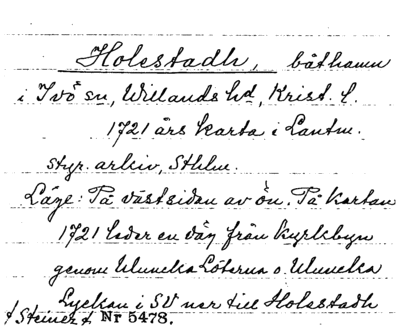 Holestadh, båthamn
i Ivö sn, Willands hd, Krist. l.
1721 års karta i Lantm.
styr. arkiv, Sthlm.
Läge: På västsidan av ön. På kartan
1721 leder en väg från kyrkbyn
genom Uluncka Löterna o. Uluncka
Lyckan i SV ner till Holestadh
/Steinez/ Nr 5478.